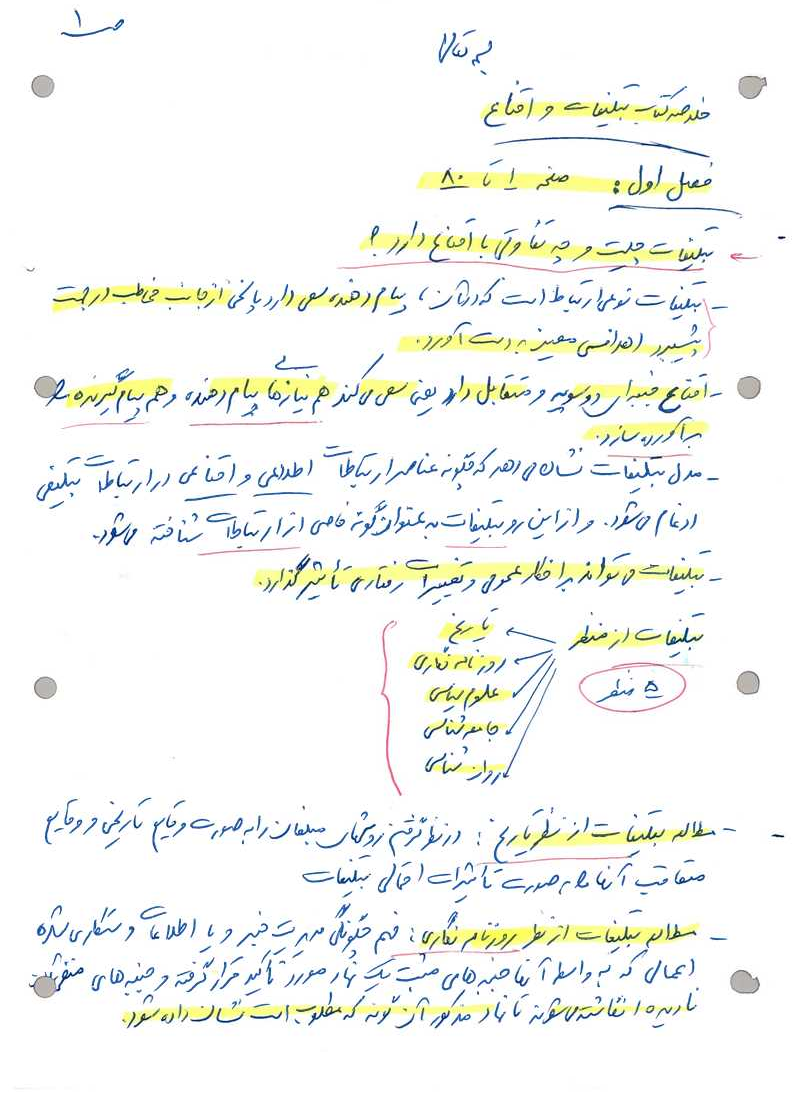 ص ۱
بسمه تعالی
خلاصه کتاب تبلیغات و اقناع
فصل اول: صفحه ۱ تا ۸۰
تبلیغات چیست و چه تفاوتی با اقناع دارد؟
- تبلیغات نوعی ارتباط است که در آن، پیام دهنده سعی دارد پاسخی از جانب مخاطب در جهت
پیشبرد اهدافی معین به دست آورد.
- اقناع جنبه‌ای دوسویه و متقابل دارد یعنی سعی می‌کند هم نیازهای پیام دهنده و هم پیام گیرنده را
برآورده سازد.
- مدل تبلیغات نشان می‌دهد که چگونه عناصر ارتباطات اطلاعی و اقناعی در ارتباطات تبلیغی
ادغام می‌شود. و از این رو تبلیغات به عنوان گونه خاصی از ارتباطات شناخته می‌شود.
- تبلیغات می‌تواند بر افکار عمومی و تغییرات رفتاری تأثیر گذارد.
تبلیغات از منظر
تاریخ
روزنامه نگاری
علوم سیاسی
جامعه شناسی
روان شناسی
۵ منظر
- مطالعه تبلیغات از نظر تاریخ: در نظر گرفتن روشهای مبلغان را به صورت وقایع تاریخی و وقایع
متعاقب آنها را به صورت تأثیرات احتمالی تبلیغات
- مطالعه تبلیغات از نظر روزنامه نگاری: فهم چگونگی مدیریت خبر و یا اطلاعات دستکاری شده
اعمالی که به واسطه آنها جنبه‌های مثبت یک نهاد مورد تأکید قرار گرفته و جنبه‌های منفی‌اش
نادیده انگاشته می‌شوند تا نهاد مذکور آن گونه که مطلوب است نشان داده شود.